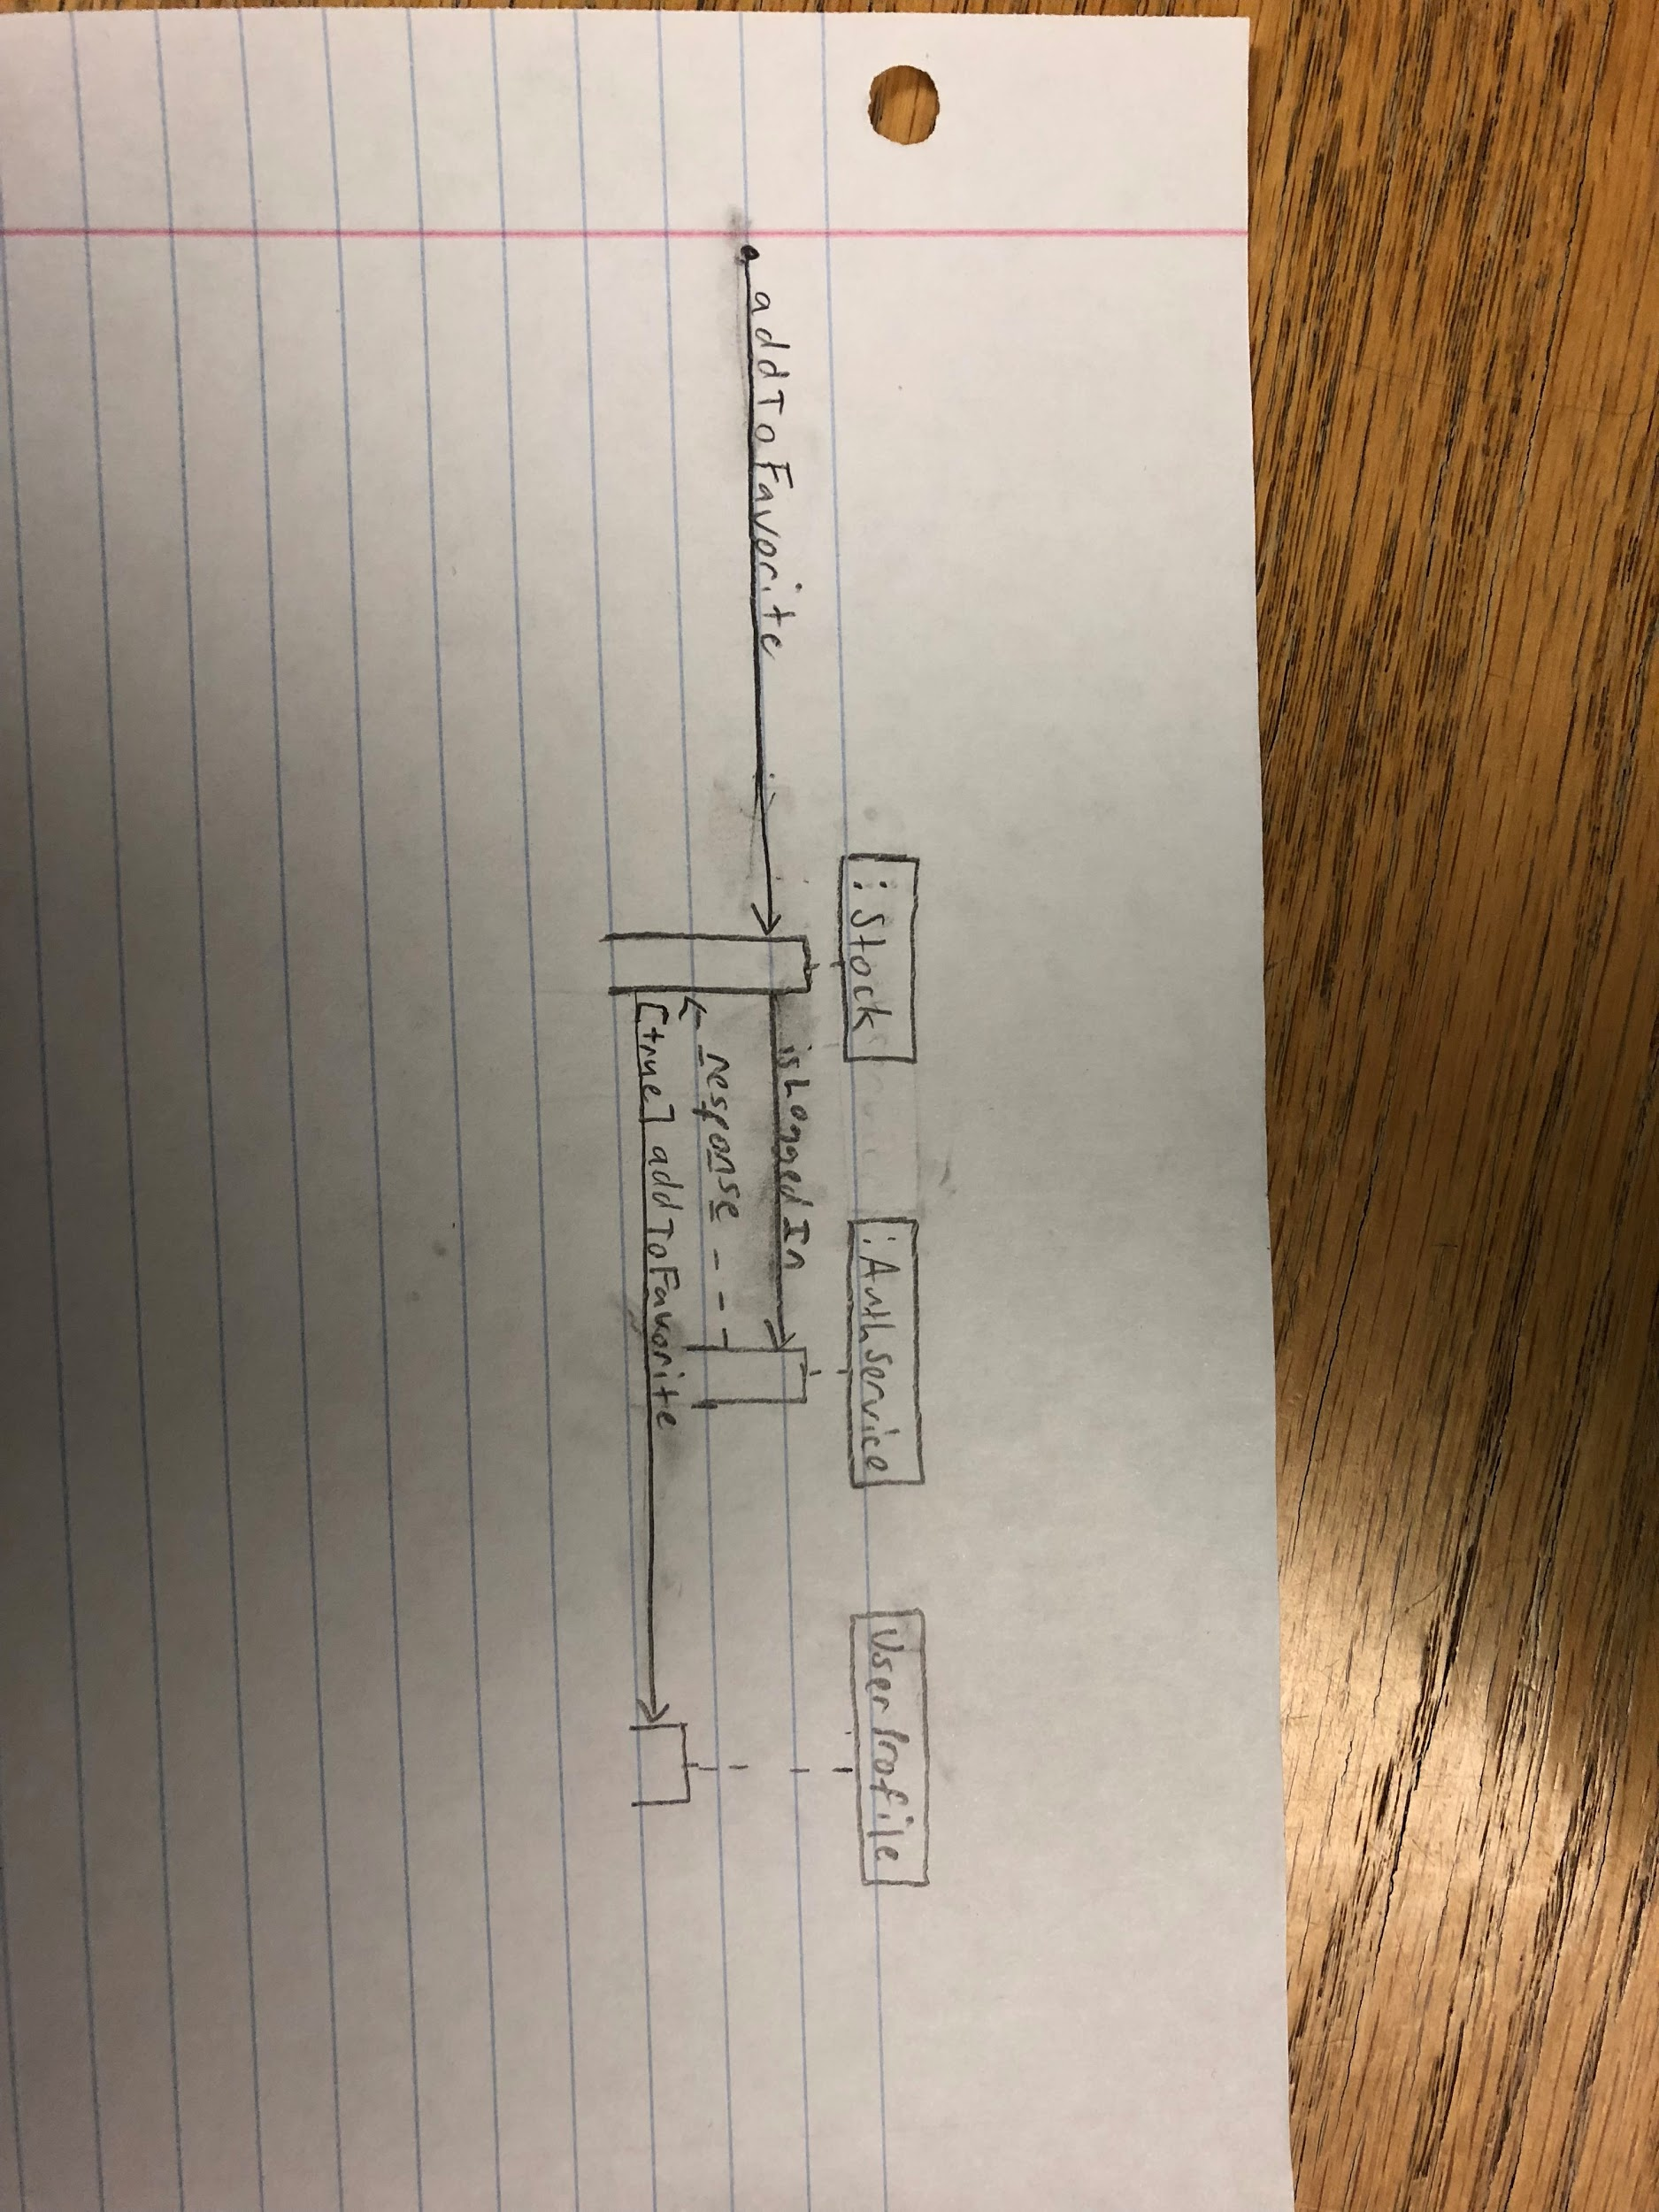 :Stock
:AuthService
UserProfile
addToFavorite
isLoggedIn
response
[true] addToFavorite